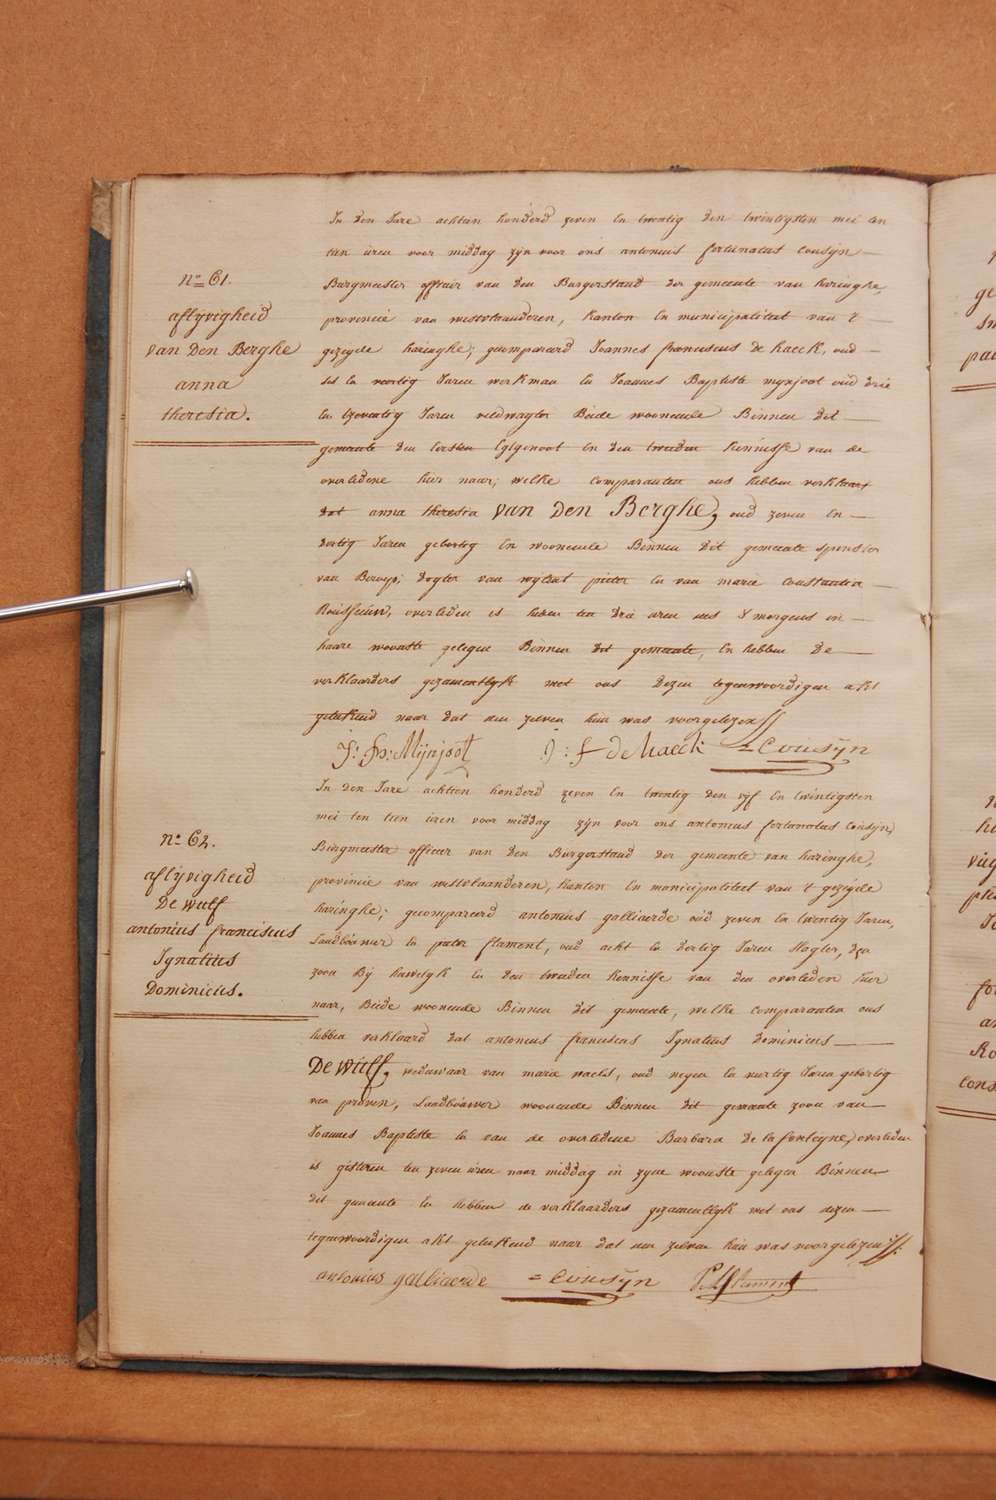 n° 61.
aflyvigheid
van Den Berghe
anna
theresia.
In den Jare achtien honderd zeven en twentig den twintigsten mei ten
tien uren voor middag zijn voor ons antonius fortunatus Cousijn
Burgmeester officier van den Burgerstand der gemeente van haringhe,
provincie van westvlaanderen, kanton en municipaliteit van t
gezeyde haringhe; gecompareerd Joannes franciscus de haeck, oud
en veertig Jaren werkman en Joannes Baptiste mynjoot oud drie
en tzeventig Jaren veldwagter Beide woonende Binnen dit
gemeente den eersten Eygenoot en den tweeden kennisse van de
overledene hier naar; welke comparanten ons hebben verklaart
dat anna theresia van Den Berghe, oud zeven en
dertig Jaren gebortig en woonende Binnen dit gemeente spinster
van Beroep; dogter van wylent pieter en van marie constantia
Rousseeuw, overleden is heden ten drie uren des s' morgens in
haare woonste gelegen Binnen dit gemeente, en hebben De
verklaarders gezamentlyk met ons Dezen tegenwoordigen akt
geteekend naar dat aen zelven hun was voorgelezen
J: Bp: Mijnjoot J: f de haeck = Cousijn
n° 62.
aflijvigheid
De wulf
antonius franciscus
Ignatius
Dominicus.
In den Jare achtien honderd zeven en twentig den vyf en twintigsten
mei ten tien uren voor middag zijn voor ons antonius fortunatus Cousijn
Burgmeester officier van den Burgerstand der gemeente van haringhe,
provincie van westvlaanderen, kanton en municipaliteit van t gezeyde
haringhe; gecompareerd antonius galliaerde oud zeven en twentig Jaren,
Landbouwer en pieter flament, oud acht en dertig Jaren slagter, den
zoon Bij huwelyk en den tweeden kennisse van den overleden hier
naar, Beide woonende Binnen dit gemeente, welke comparanten ons
hebben verklaard dat antonius franciscus Ignatius dominicus
De wulf, weduwaar van marie oud negen en veertig Jaren gebortig
van proven, Landbouwer woonende Binnen dit gemeente zoon van
Joannes Baptiste en van de overledene Barbara De la fonteyne, overleden
is gisteren ten zeven uren naar middag in zyne woonste gelegen Binnen
dit gemeente en hebben de verklaarders gezamentlyk met ons dezen
tegenwoordigen akt geteekend naar dat aen zelven hun was voorgelezen
antonius galliaerde = Cousijn P: flament